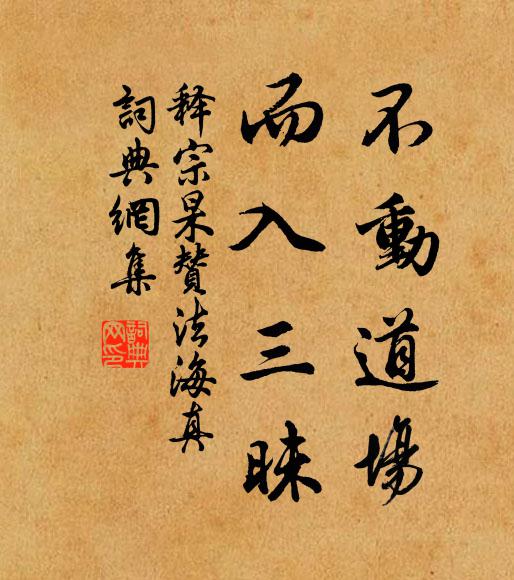 不動道場
而入三昧
释宗杲贊法海真
詞典網集
詞典
网印